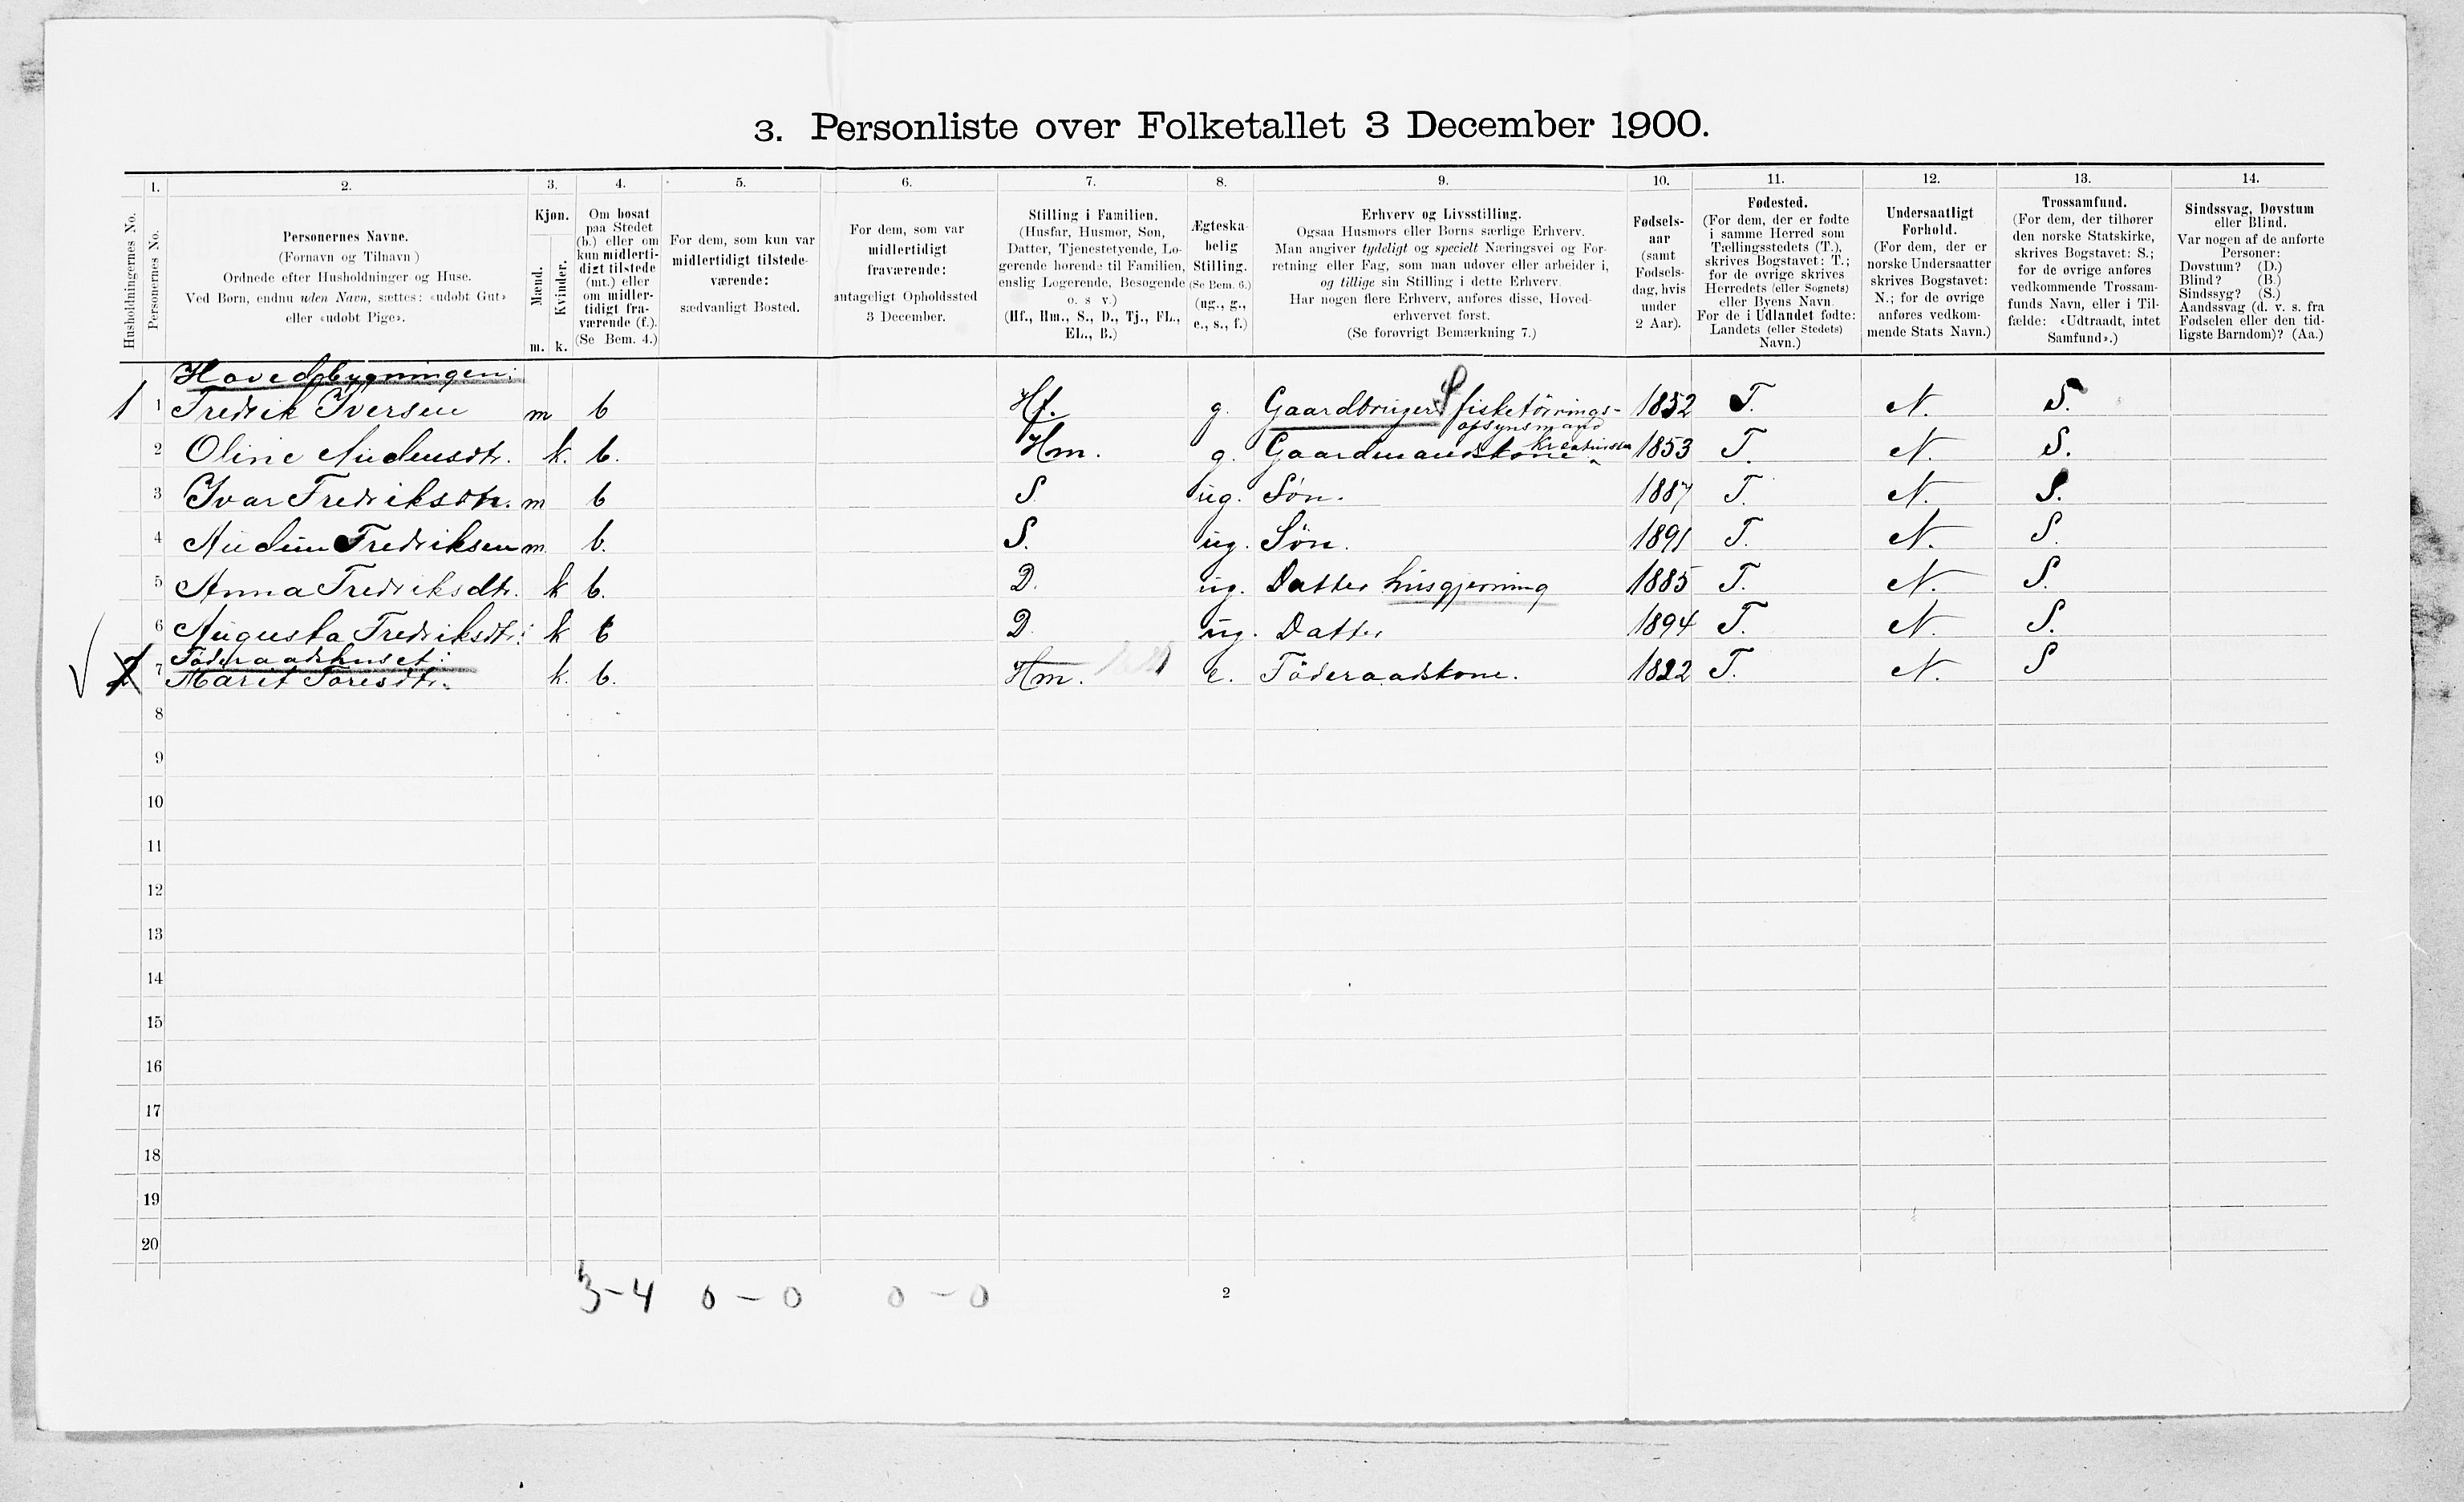 3. Personliste over Folketallet 3 December 1900.
1. 2. 3. 4. 5. 6. 7. 8. 9. 10. 11. 12. 13. 14.
Husholdningernes No.
Personernes No.
Personernes Navne.
(Fornavn og Tilnavn)
Ordnede efter Husholdninger og Huse.
Ved Børn, endnu uden Navn, sættes: «udøbt Gut»
eller «udøbt Pige».
Kjøn.
Mænd.
Kvinder.
m. k.
Om bosat
paa Stedet
(b.) eller om
kun midlerti-
digt tilstede
(mt.) eller
om midler-
tidigt fra-
værende (f.).
(Se Bem. 4.)
For dem, som kun var
midlertidigt tilstede-
værende:
sædvanligt Bosted.
For dem, som var
midlertidigt
fraværende:
antageligt Opholdssted
3 December.
Stilling i Familien.
(Husfar, Husmor, Søn,
Datter, Tjenestetyende, Lo-
gerende hørende til Familien,
enslig Logerende, Besøgende
o. s v.)
(Hf., Hm., S., D., Tj., FL.,
EL., B.)
Ægteska-
belig
Stilling.
(Se Bem. 6.)
(ug., g.,
e., s., f.)
Erhverv og Livsstilling.
Ogsaa Husmors eller Børns særlige Erhverv.
Man angiver tydeligt og specielt Næringsvei og For-
retning eller Fag, som man udøver eller arbeider i,
og tillige sin Stilling i dette Erhverv.
Har nogen flere Erhverv, anføres disse, Hoved-
erhvervet først.
(Se forøvrigt Bemærkning 7.)
Fødsels-
aar
(samt
Fødsels-
dag, hvis
under
2 Aar).
Fødested.
(For dem, der er fødte
i samme Herred som
Tællingsstedets (T.),
skrives Bogstavet: T.;
for de øvrige skrives
Herredets (eller Sognets)
eller Byens Navn.
For de i Udlandet fødte:
Landets (eller Stedets)
Navn.)
Undersaatligt
Forhold.
(For dem, der er
norske Undersaatter
skrives Bogstavet:
N.; for de øvrige
anføres vedkom-
mende Stats Navn.)
Trossamfund.
(For dem, der tilhører
den norske Statskirke,
skrives Bogstavet: S.;
for de øvrige anføres
vedkommende Trossam-
funds Navn, eller i Til-
fælde: «Udtraadt, intet
Samfund».)
Sindssvag, Døvstum
eller Blind.
Var nogen af de anførte
Personer:
Døvstum? (D.)
Blind? (B.)
Sindssyg? (S.)
Aandssvag (d. v. s. fra
Fødselen eller den tid-
ligste Barndom)? (Aa.)
Hovedbygningen:
1 1 Fredrik Iversen m b Hf. g. Gaardbruger fisketörrings- 1852 T. N. S.
opsynsmand
2 Oline Audensdtr. k. b. Hm. g. Gaardmandskone 1853 T. N. S.
3 Ivar Frediksdtr. m b S ug. Søn. 1887 T. N. S.
4 Audun Frediksen m b. S. ug. Søn. 1891 T. N. S.
5 Anna Frediksdtr. k b. D. ug. Datter husgjerning 1885 T. N. S.
6 Augusta Frediksdtr. k b D ug. Datter 1894 T. N. S.
Föderaadshuset:
2 7 Marit Toresdtr. k. b. Hm. e. Föderaadskone. 1822 T. N. S
8
9
10
11
12
13
14
15
16
17
18
19
20
3-4 0-0 0-0
2